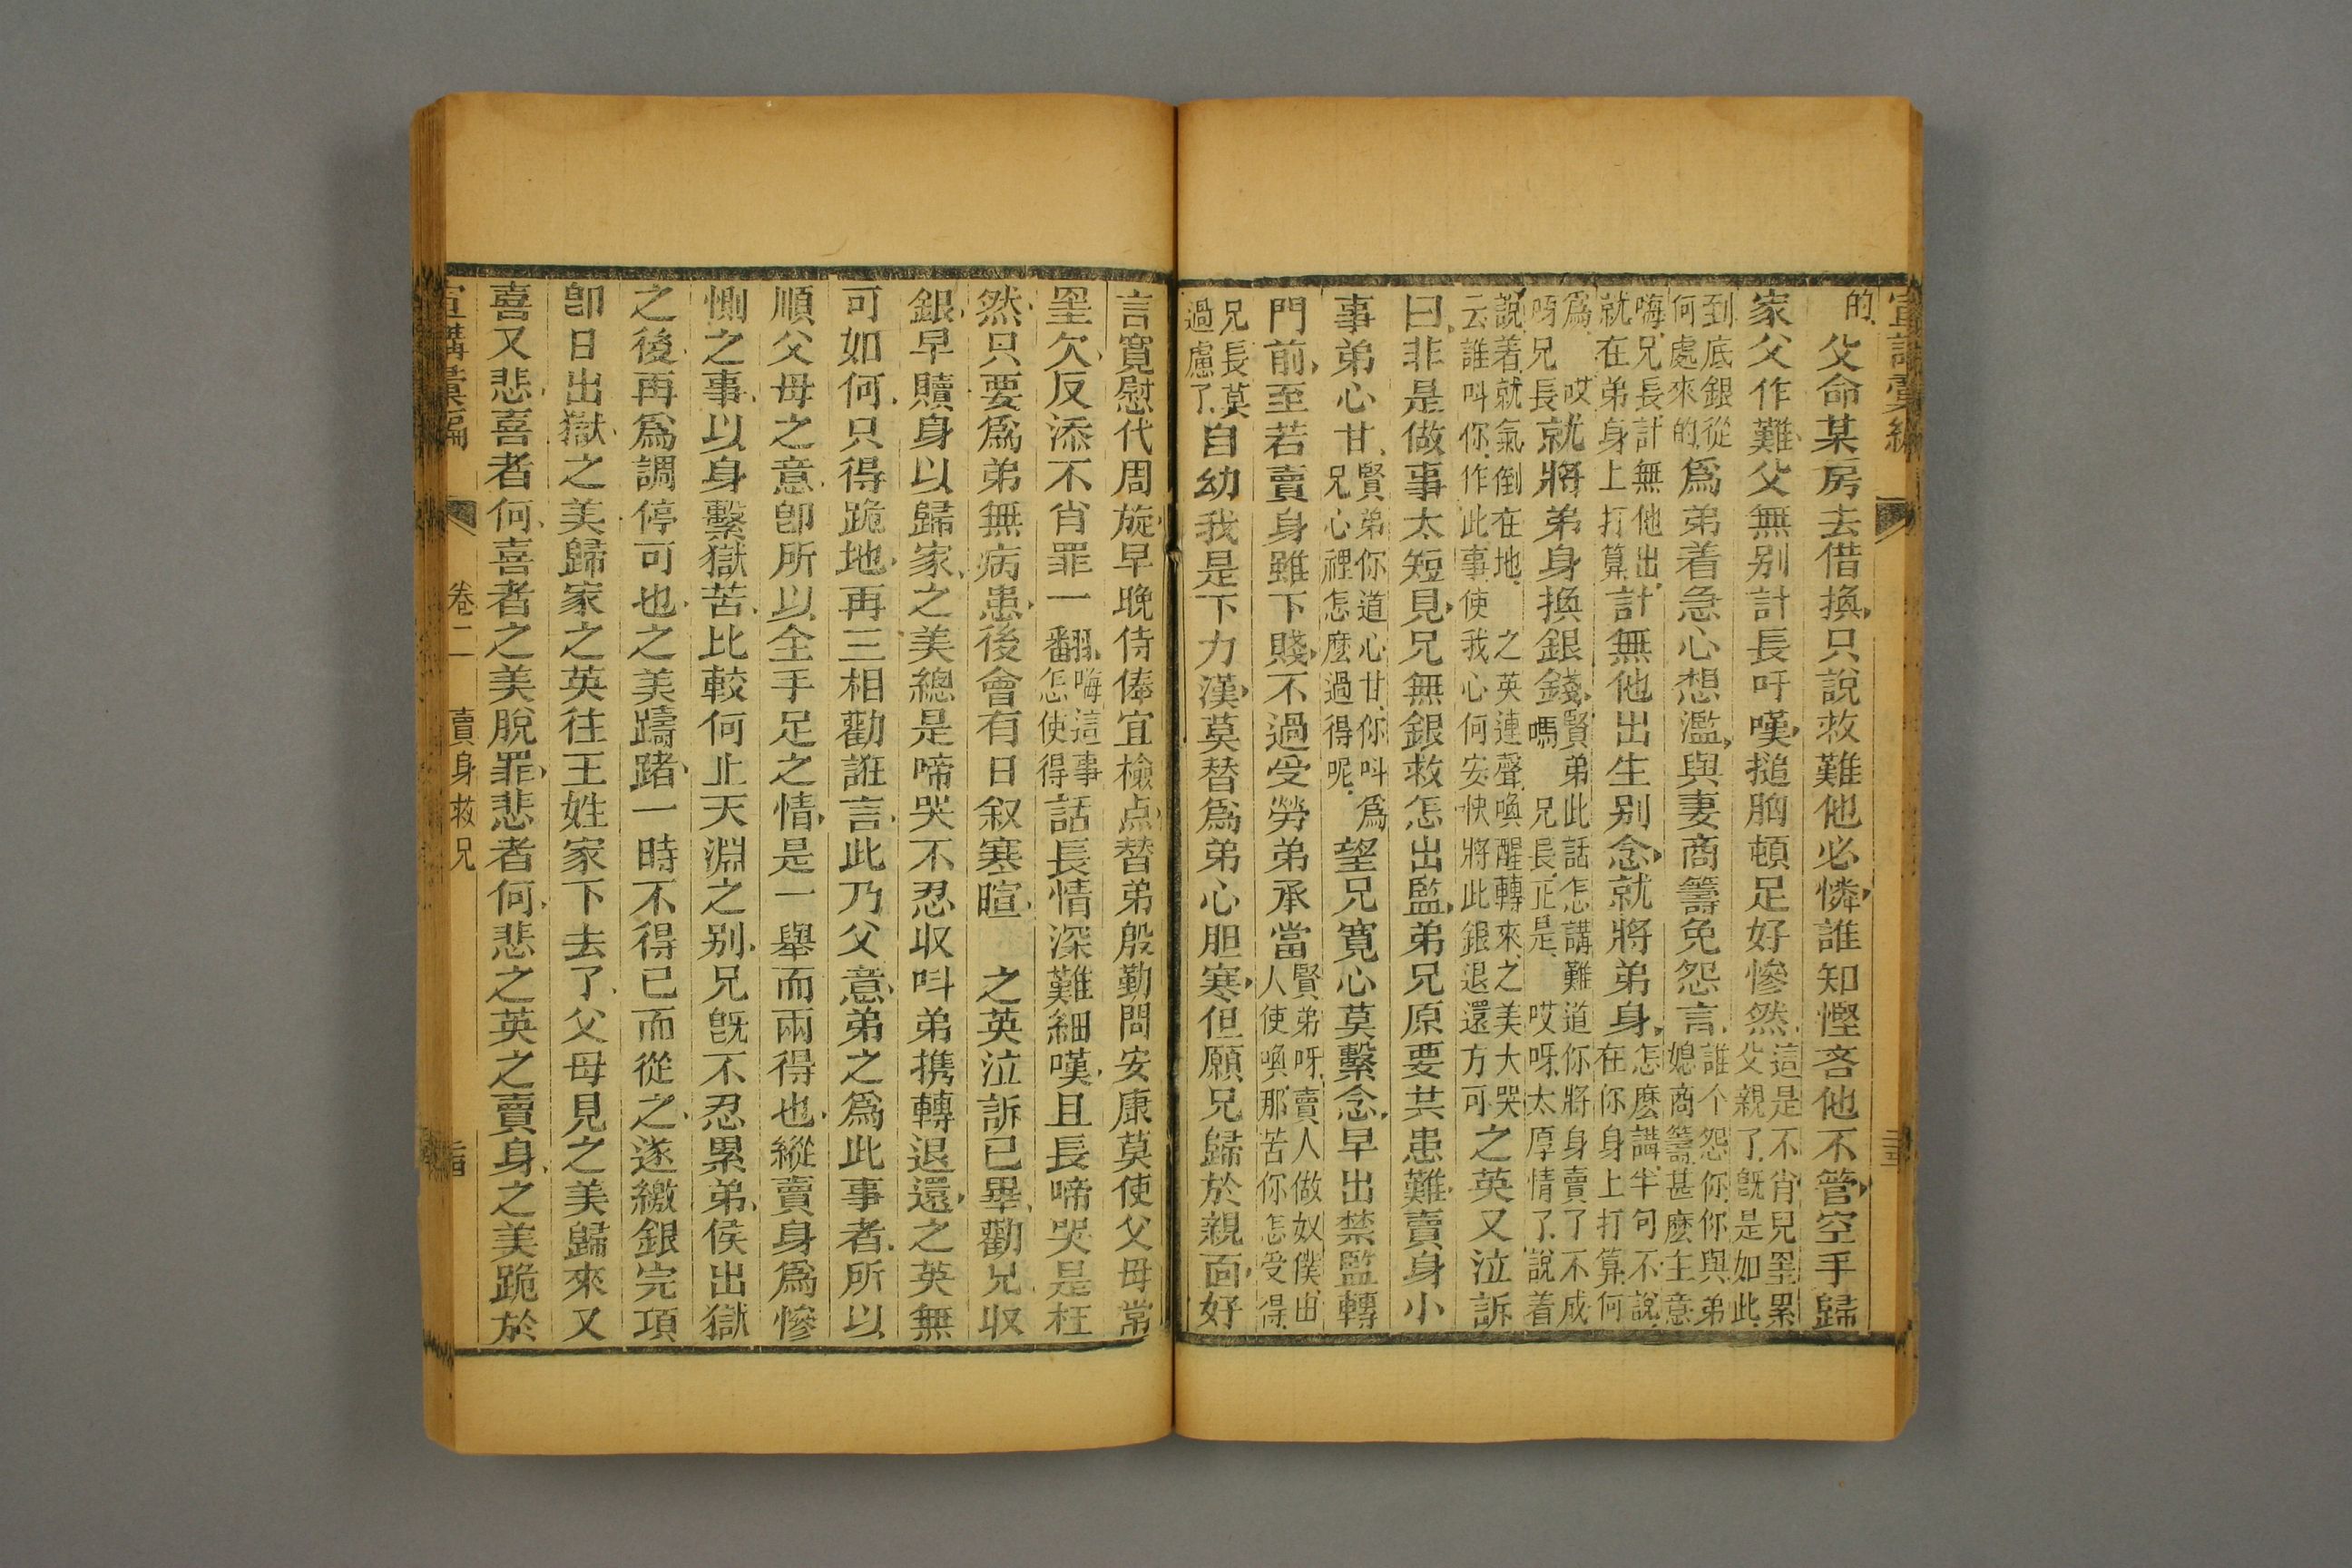 宣講彙編
的父命某房去借換只說救難他必憐誰知慳吝他不管空手歸
家父作難父無別計長吁嘆搥胸頓足好慘然這是不肖兒罣累父親了旣是如此
到底銀從何處來的爲弟着急心想濫與妻商籌免怨言誰个怨你你與弟媳商籌甚麽主意
嗨兄長計無他出就在弟身上打算計無他出生别念就將弟身怎麽講半句不說在你身上打算何
爲呀兄長哎就將弟身換銀錢賢弟此話怎講難道你將身賣了不成嗎兄長正是哎呀太厚情了說着
說着就氣倒在地之英連聲喚醒轉來之美大哭云誰呌你作此事使我心何安快將此銀退還方可之英又泣訴
曰非是做事太短見兄無銀救怎出監弟兄原要共患難賣身小
事弟心甘賢弟你道心甘你呌爲兄心裡怎麽過得呢望兄寬心莫繫念早出禁監轉
門前至若賣身雖下賤不過受勞弟承當賢弟呀賣人做奴僕由人使喚那苦你怎受得
兄長莫過慮了自幼我是下力漢莫替爲弟心胆寒但願兄歸於親面好
言寬慰代周旋早晚侍俸宜檢点替弟殷勤問安康莫使父母常
罣欠反添不肖罪一翻嗨這事怎使得話長情深難細嘆且長啼哭是枉
然只要爲弟無病患後會有日叙寒暄之英泣訴已畢勸兄収
銀早贖身以歸家之美總是啼哭不忍収呌弟携轉退還之英無
可如何只得跪地再三相勸誑言此乃父意弟之爲此事者所以
順父母之意卽所以全手足之情是一舉而兩得也縱賣身爲慘
惻之事以身繫獄苦比較何止天淵之别兄旣不忍累弟俟出獄
之後再爲調停可也之美躊躇一時不得已而從之遂繳銀完項
卽日出獄之美歸家之英往王姓家下去了父母見之美歸來又
喜又悲喜者何喜者之美脫罪悲者何悲之英之賣身之美跪於
宣講彙編 卷二 賣身救兄